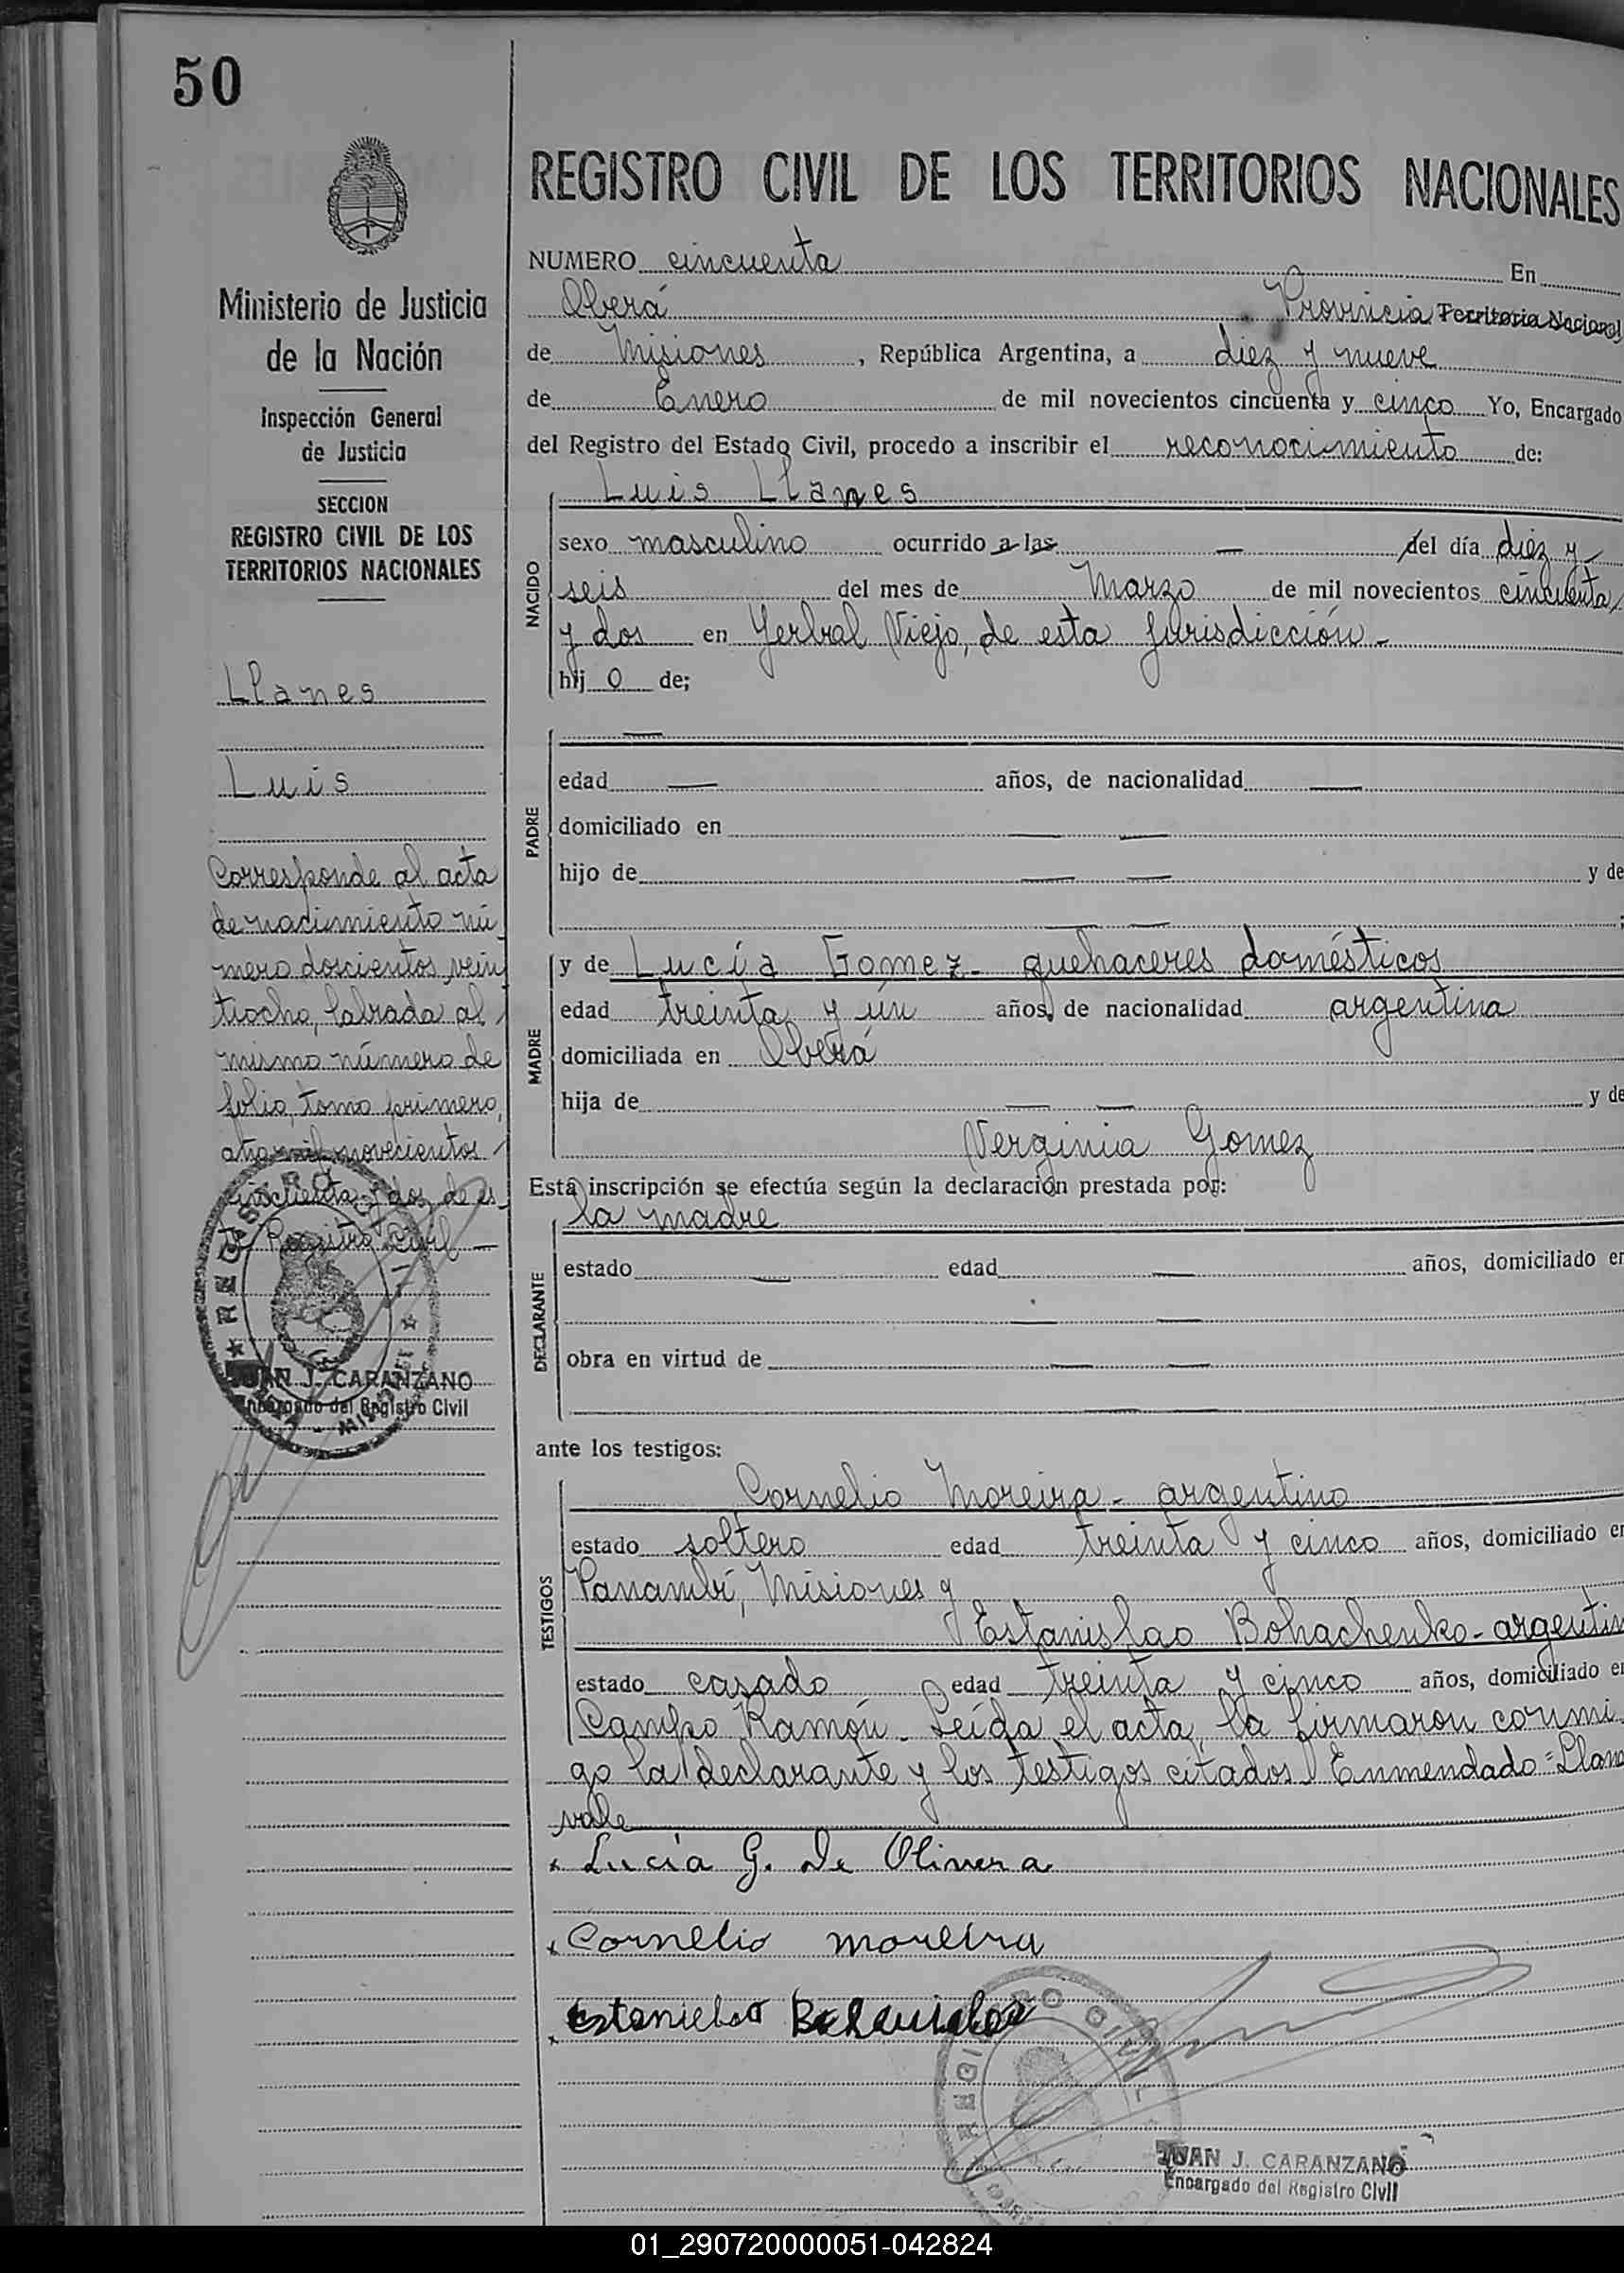 50
REGISTRO CIVIL DE LOS TERRITORIOS NACIONALES
Ministerio de Justicia
de la Nación
Inspección General
de Justicia
SECCION
REGISTRO CIVIL DE LOS
TERRITORIOS NACIONALES
Llanes
Luis
Corresponde al acta
de nacimiento nú
mero doscientos vein
tiocho, labrada al
mismo número de
folio, tomo primero,
año mil novecientos
cincuenta y dos de es
te Registro Civil
REGISTRO CIVIL
JUAN J. CARANZANO
Encargado del Registro Civil
NUMERO cincuenta En
Oberá Provincia Territorio Nacional
de Misiones, República Argentina, a diez y nueve
de Enero de mil novecientos cincuenta y cinco Yo, Encargado
del Registro del Estado Civil, procedo a inscribir el reconocimiento de:
NACIDO
Luis Llanes
sexo masculino ocurrido a las — del día diez y
seis del mes de Marzo de mil novecientos cincuenta
y dos en Yerbal Viejo, de esta jurisdicción-
hij o de;
PADRE
—
edad — años, de nacionalidad —
domiciliado en — —
hijo de — — y de
— —
MADRE
y de Lucía Gomez- quehaceres domésticos
edad treinta y ún años, de nacionalidad argentina
domiciliada en Oberá
hija de — — y de
Verginia Gomez
Esta inscripción se efectúa según la declaración prestada por:
DECLARANTE
la madre
estado — edad — años, domiciliado en
— —
obra en virtud de — —
—
ante los testigos:
TESTIGOS
Cornelio Moreira- argentino
estado soltero edad treinta y cinco años, domiciliado en
Panambí, Misiones y
Estanislao Bohachenko- argentin
estado casado edad treinta y cinco años, domiciliado en
Campo Ramón- Leída el acta, la firmaron conmi
go la declarante y los testigos citados. Enmendado=Llane
vale
Lucía G. De Olivera
Cornelio moreira
Estanislao
REGISTRO CIVIL
JUAN J. CARANZANO
Encargado del Registro Civil
01_290720000051-042824